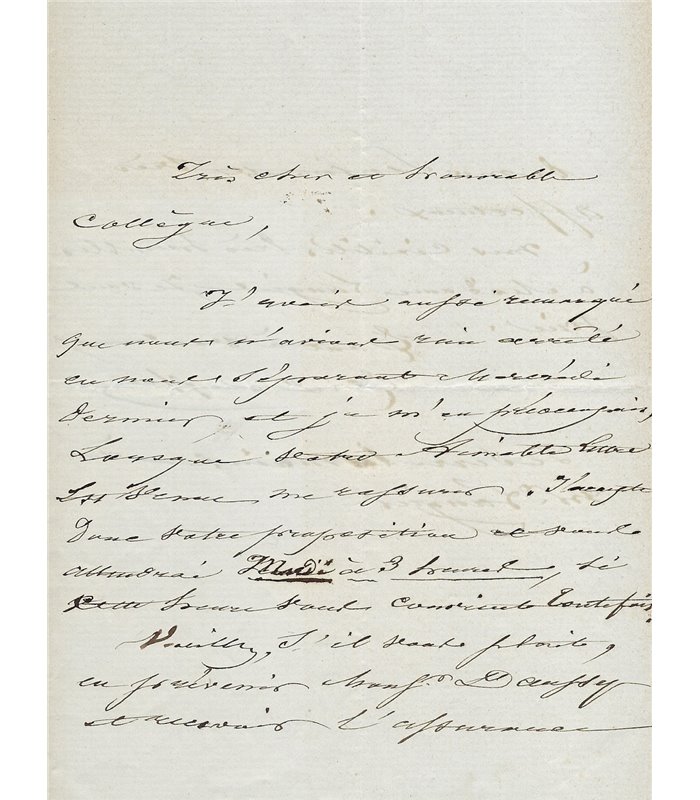 Très cher et honorable
Collègue,
J'avois aussi remarqué
que nous n'avions rien arrêté
en nous séparant Mercredi
dernier et je m'en préoccupois,
Lorsque votre Aimable Lettre
Est venue me rassurer. J'accepte
Donc votre proposition et vous
attendrai à 3 heures, si
cette heure vous convient toutefois.
Veuillez, S'il vous plait,
en prévenir Monsr. Daussy
et recevoir l'assurance